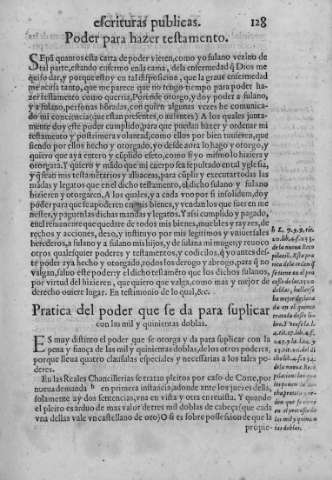 escrituras publicas. 128
Poder para hazer testamento.
Sepã quantos esta carta de poder vieren, como yo fulano vezino de
tal parte, estando enfermo en la cama, de la enfermedad q̃ Dios me
quiso dar, y porque estoy en tal disposicion, que la graue enfermedad
me acusa tanto, que me parece que no tengo tiempo para poder ha-
zer testamento como querria, Porende otorgo, y doy poder a fulano,
y a fulano, personas honradas, con quien algunas vezes he comunica-
do mi conciencia, que estan presentes, o ausentes) A los quales junta-
mente doy este poder cumplido, para que puedan hazer y ordenar mi
testamento y postrimera voluntad, como ellos por bien tuuieren, que
siendo por ellos hecho y otorgado, yo desde aora lo hago y otorgo, y
quiero que aya entero y cũplido efeto, como si yo mismo lo hiziera y
otorgara. Y quiero y mãdo que mi cuerpo sea sepultado en tal yglesia,
y q̃ sean mis testamẽtarios y albaceas, para cũplir y executar todas las
mãdas y legatos que en el dicho testamento, el dicho fulano y fulano
hizieren y otorgarẽ. A los quales, y a cada vno por si insolidum, doy
poder para que se apoderen en mis bienes, y vendan los que fueren me
nester, y paguen las dichas mandas y legatos. Y assi cumplido y pagado,
en el remanente que quedare de todos mis bienes, muebles y rayzes, de
rechos y acciones, dexo, y instituyo por mis legitimos y vniuersales
herederos, a fulano y a fulano mis hijos, y de fulana mi muger, y reuoco
otros qualesquier poderes y testamentos, y codicilos, q̃ yo antes des-
te poder aya hecho y otorgado, todos los derogo y abrogo, para q̃ no
valgan, saluo este poder y el dicho testamẽto que los dichos fulanos,
por virtud del hizieren, que quiero que valga, como mas y mejor de
derecho ouiere lugar. En testimonio de lo qual, &c.
Pratica del poder que se da para suplicar
con las mil y quinientas doblas.
Es muy distinto el poder que se otorga y da para suplicar con la
pena y fiança de las mil y quinientas doblas, de los otros poderes,
porque lleua quatro clausulas especiales y necessarias a los tales po-
deres.
En las Reales Chancillerias se tratan pleitos por caso de Corte, por
nueua demanda b en primera instancia, adonde ante los juezes della,
solamente ay dos sentencias, vna en vista y otra en reuista. Y quando
el pleito es arduo de mas valor de tres mil doblas de cabeça (que cada
vna dellas vale vn castellano de oro) O si es sobre possession de que la
propie-